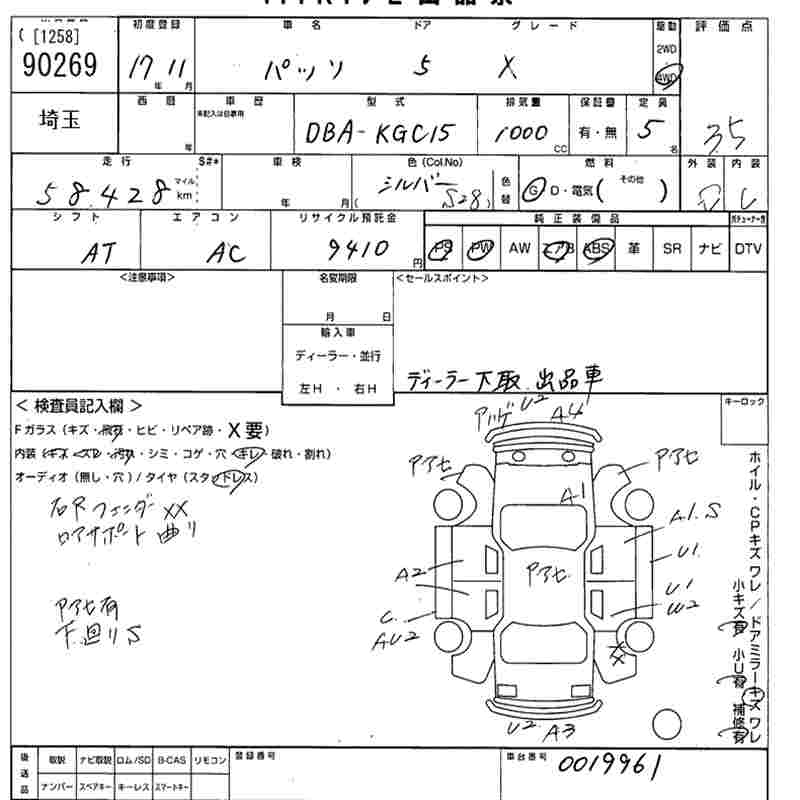 [1258]
90269
初度登録 車名 ドア グレード 駆動 評価点
17 年 11 月 パッソ 5 X 2WD 4WD
埼玉 西暦 車歴 型式 排気量 保証書 定員
年 未記入は自家用 DBA-KGC15 1000 CC 有・無 5 名 35
走行 S#* 車検 色 (Col.No) 燃料 外装 内装
58.428 マイル km 年 月 シルバー (S28) 色替 G D・電気 (その他)
シフト エアコン リサイクル預託金 純正装備品
AT AC 9410 円 PS PW AW エアB ABS 革 SR ナビ DTV
<注意事項> 名変期限 <セールスポイント>
月 日
輸入車
ディーラー・並行
左H ・ 右H ディーラー下取 出品車
< 検査員記入欄 > キーロック
Fガラス (キズ・飛石・ヒビ・リペア跡・X要)
内装 (キズ・スレ・汚れ・シミ・コゲ・穴・キレ・破れ・割れ)
オーディオ (無し・穴) / タイヤ (スタッドレス)
右Rフェンダー XX
ロアサポート 曲り
Pアセ有
下廻りS
U2 A4
Pアセ Pアセ
A1 A1.S
U1
A2 Pアセ
U1
W2
AU2
XX
U2 A3
ホイル・CPキズワレ/ドアミラーキズワレ
小キズ有 小U有 補修有
後送品 取説 ナビ取説 ロム/SD B-CAS リモコン 登録番号 車台番号
ナンバー スペアキー キーレス スマートキー 0019961